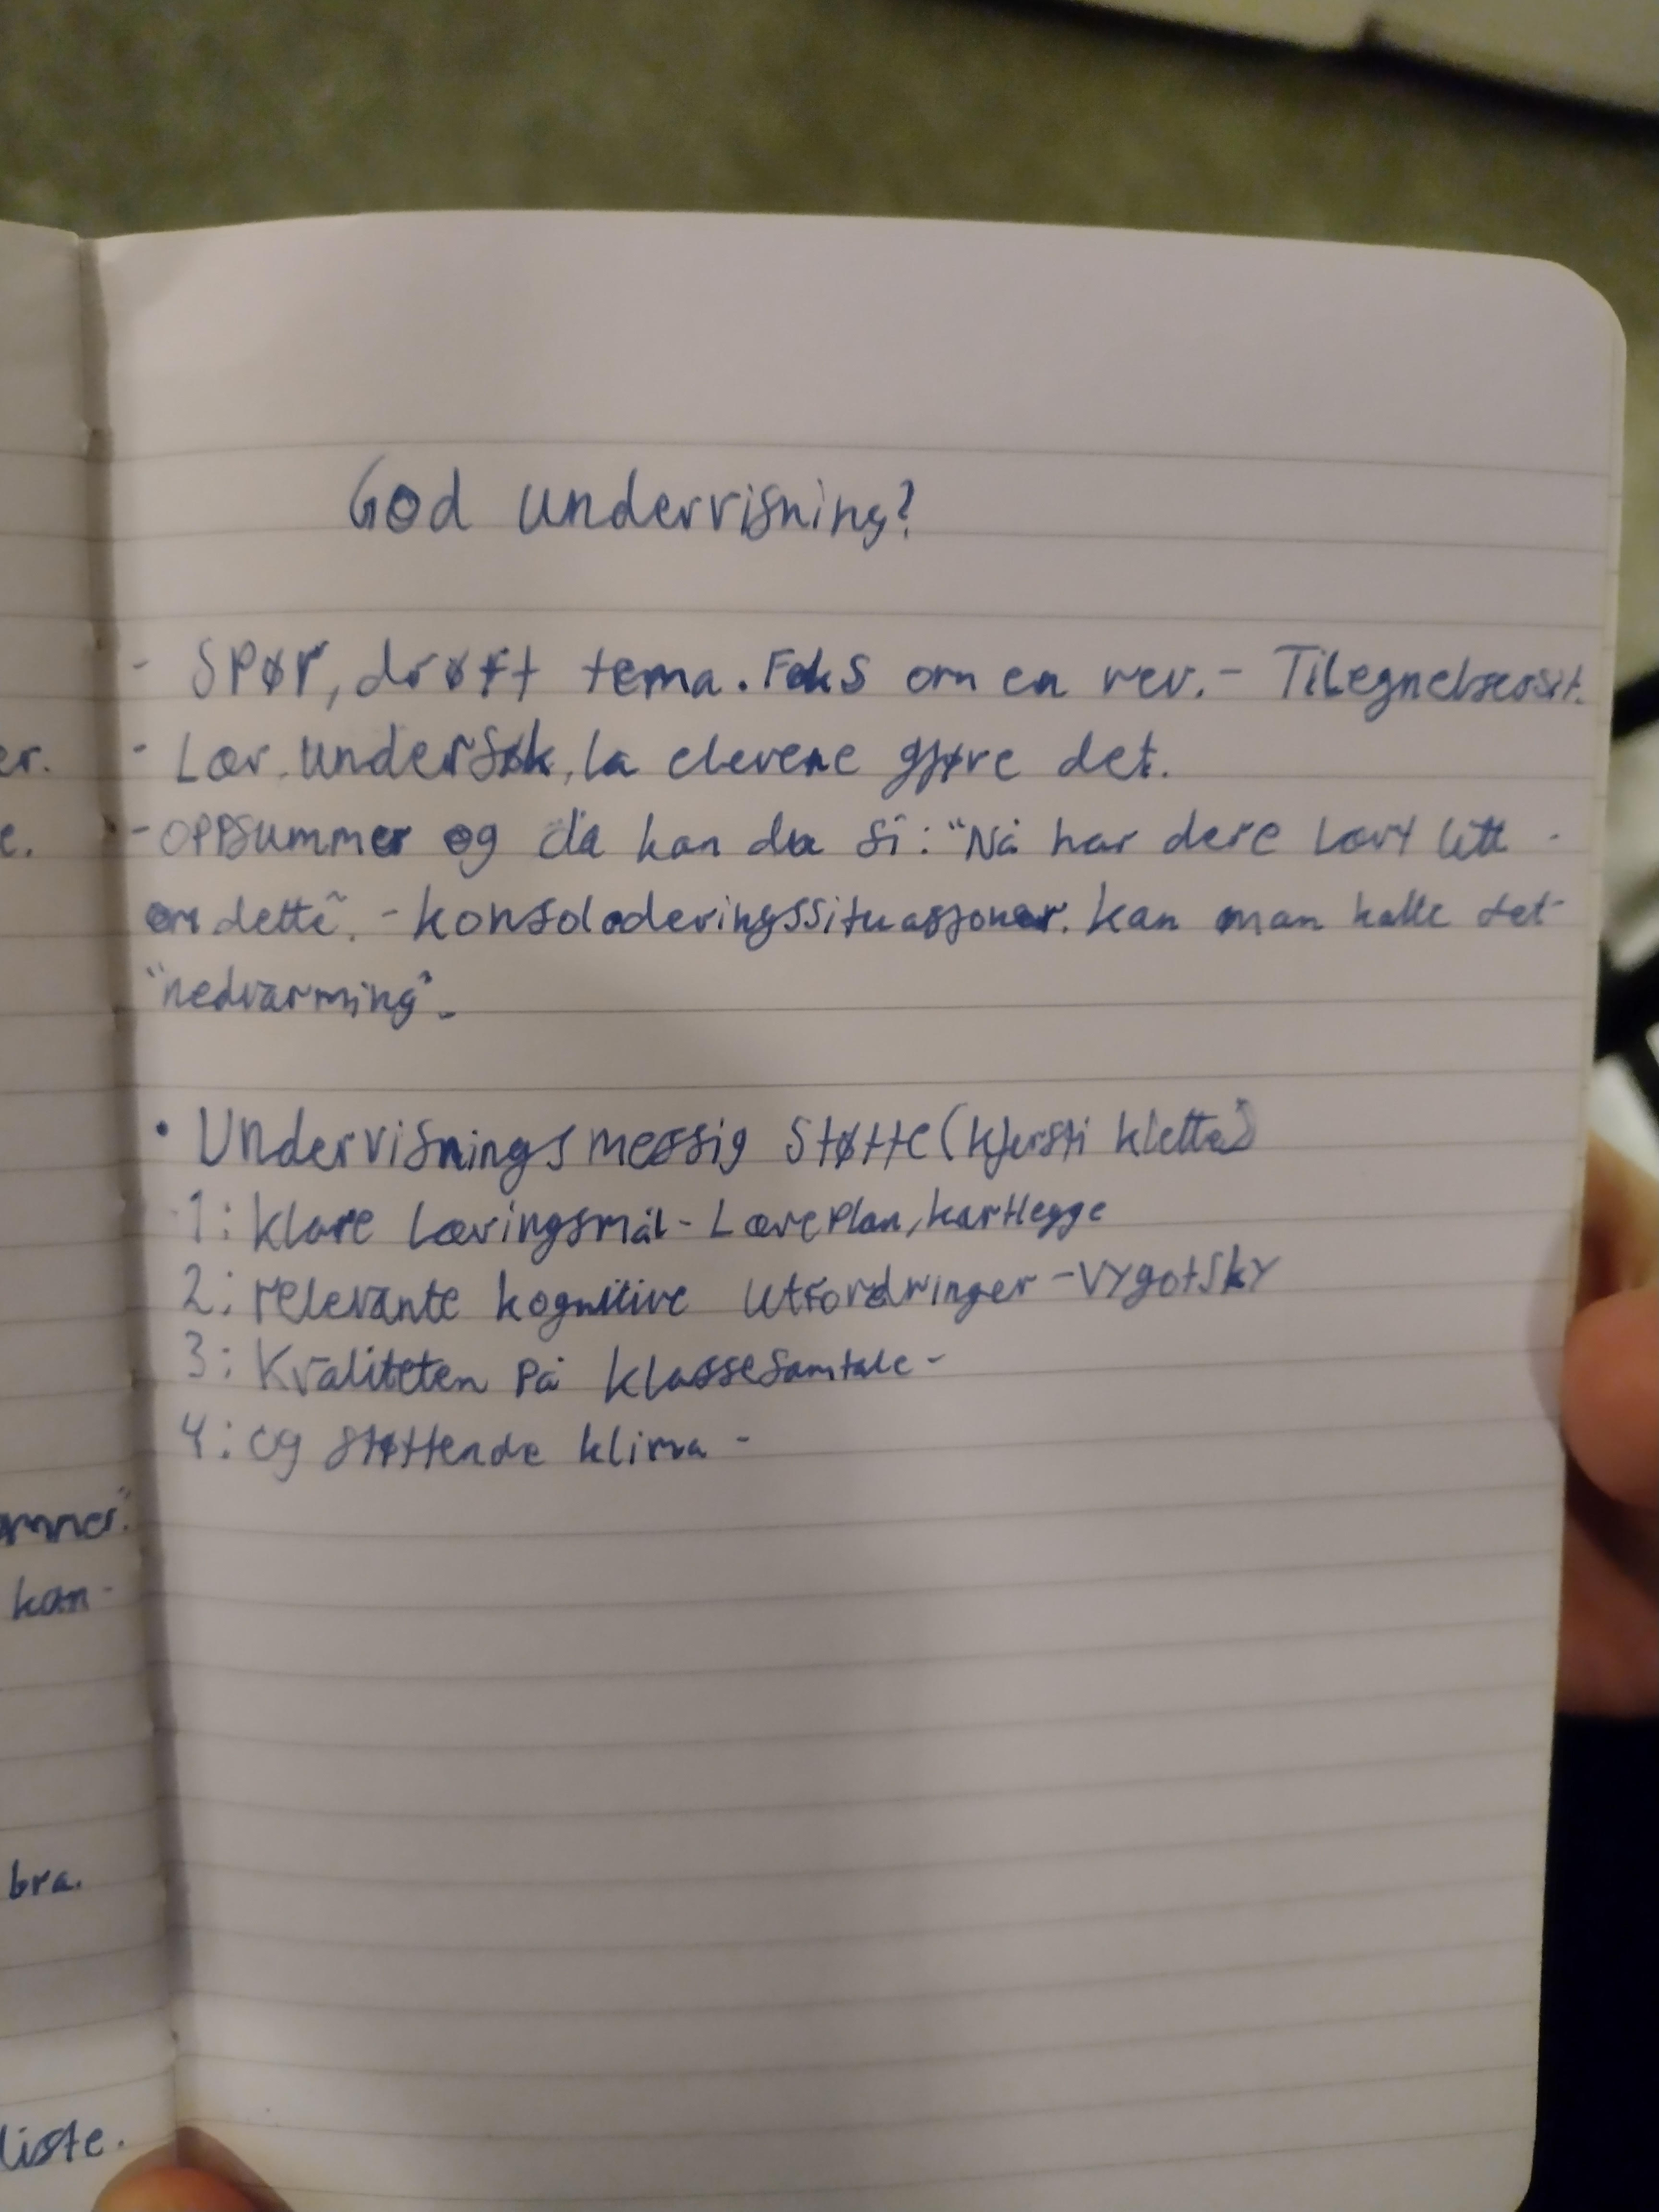 God undervisning?
- Spør, drøft tema. Feks om en rev. - Tilegnelsessit.
- Lær. undersøk, la elevene gjøre det.
- oppsummer og da kan du si: "Nå har dere lært litt -
om dette". - konsoloderingssituasjoner. kan man kalle det
"nedvarming".
• Undervisningsmessig støtte (kjersti klette)
1: klare læringsmål - Læreplan, kartlegge
2: relevante kognitive utfordringer - Vygotsky
3: Kvaliteten på klassesamtale -
4: og støttende klima -
er.
e.
kan -
bra.
liste.